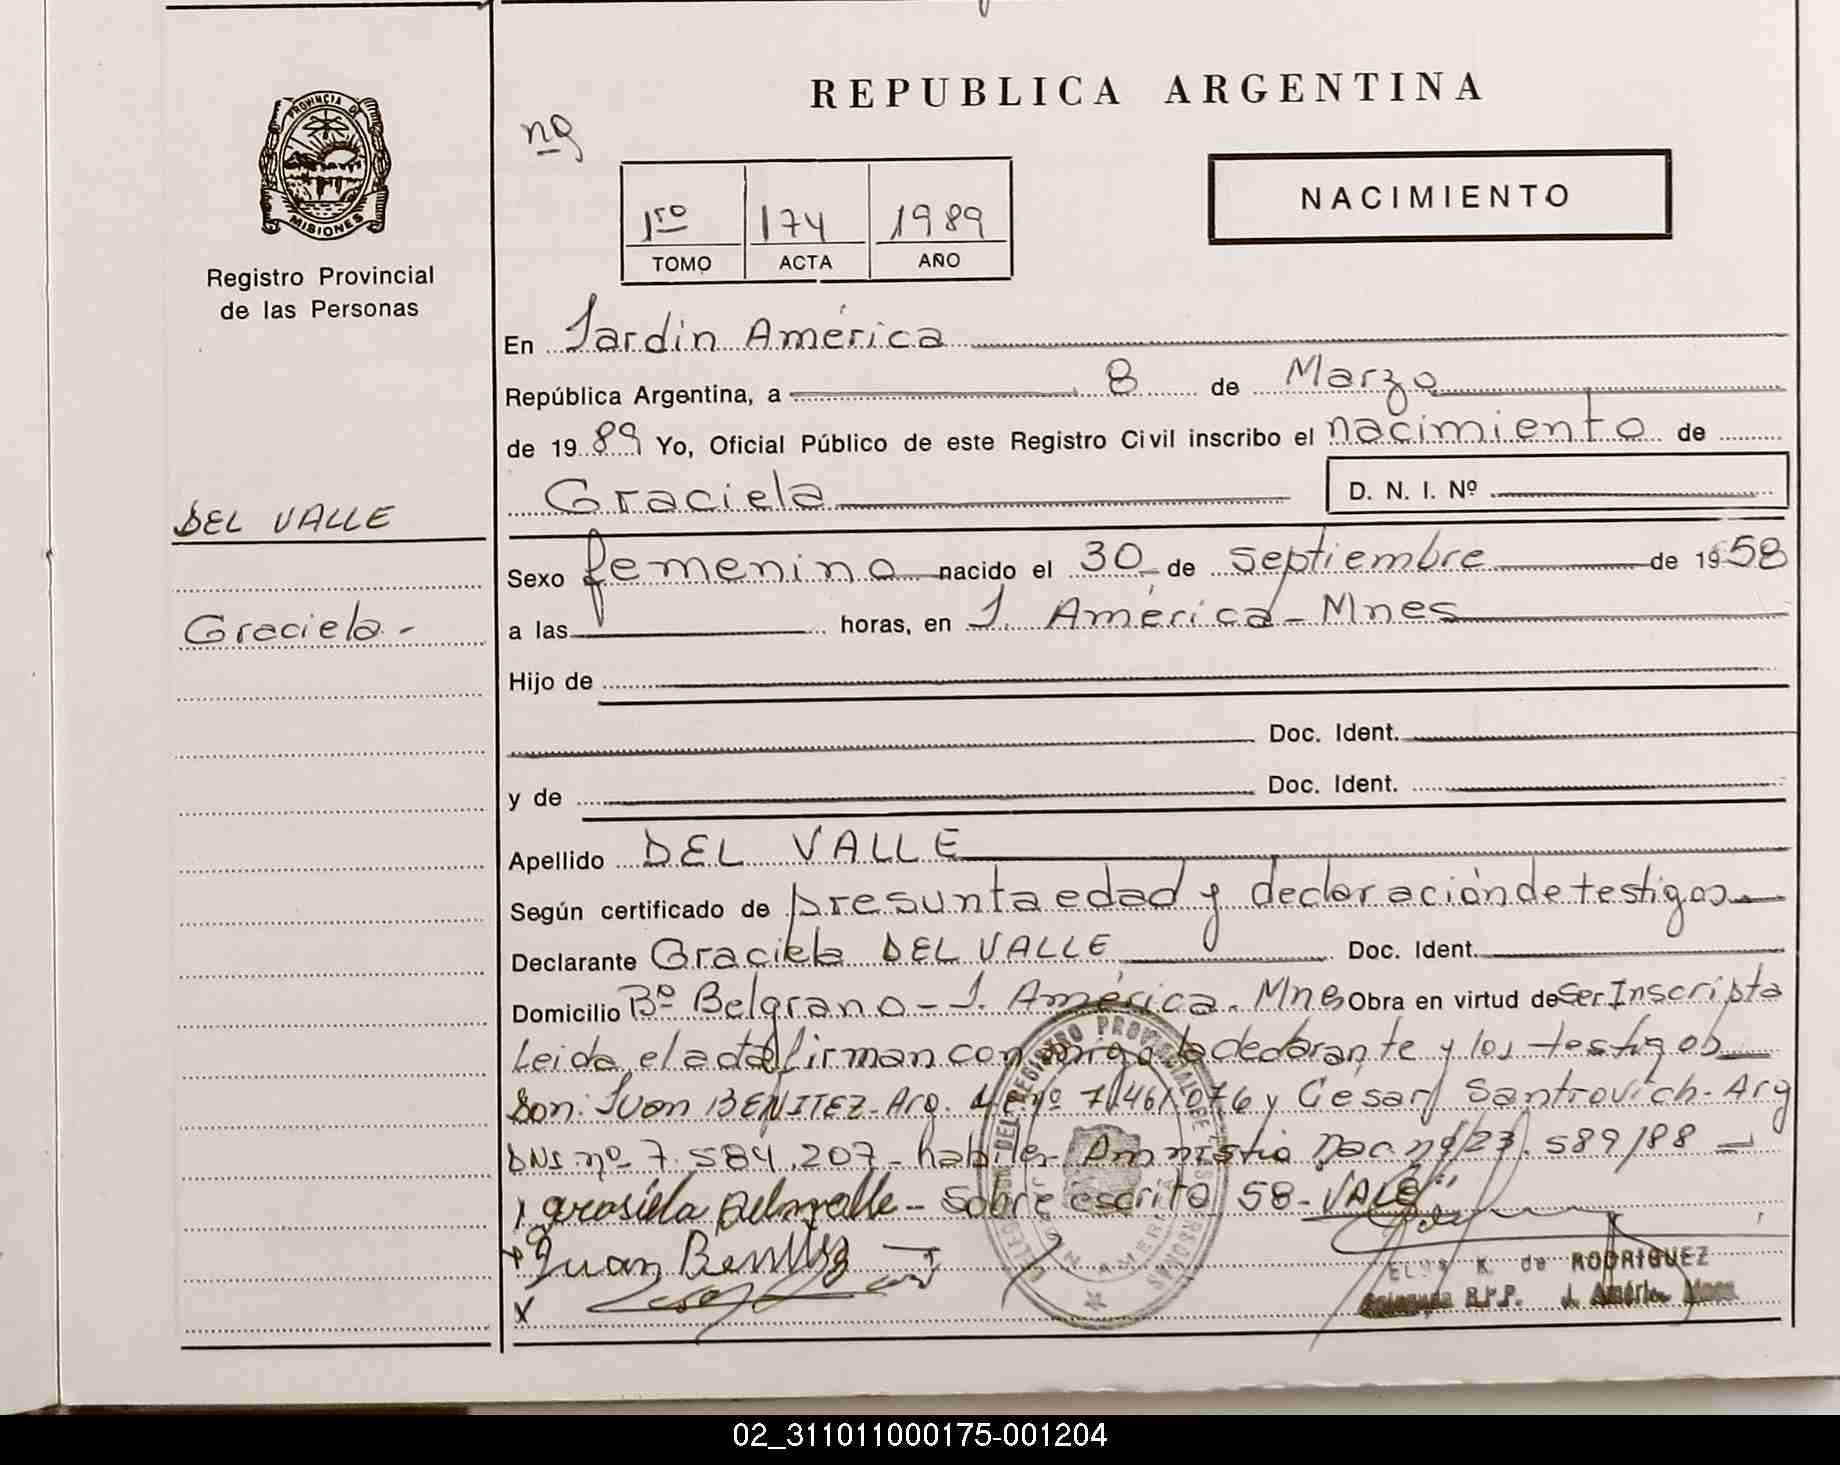 REPUBLICA ARGENTINA
PROVINCIA DE
MISIONES
Registro Provincial
de las Personas
nº
1ro 174 1989
TOMO ACTA AÑO
NACIMIENTO
En Jardín América
República Argentina, a 8 de Marzo
de 1989 Yo, Oficial Público de este Registro Civil inscribo el nacimiento de
Graciela D. N. I. Nº
DEL VALLE
Graciela.-
Sexo femenino nacido el 30 de septiembre de 1958
a las horas, en J. América - Mnes
Hijo de
Doc. Ident.
y de Doc. Ident.
Apellido DEL VALLE
Según certificado de presunta edad y declaración de testigos
Declarante Graciela DEL VALLE Doc. Ident.
Domicilio Bº Belgrano - J. América. Mnes Obra en virtud de ser Inscripta
Leida el acta firman conmigo la declarante y los testigos
Son: Juan BENITEZ - Arg. nº 7.461.076 y César Santrovich. Arg
DNI nº 7.584.207 - Amnistia Nac. nº 23.589/88 -
grasiela Delmvalle - Sobre escrito 58 - VALE"
Juan Benites
x
DE RODRIGUEZ
R.P.P. J. América Mnes.
02_311011000175-001204